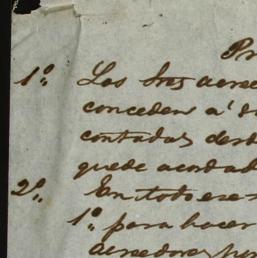 Pr
1º. Los tres acree
conceden a' d
contadas desd
quede acordad
2º. En todo ese
1º para hacer
acreedores por